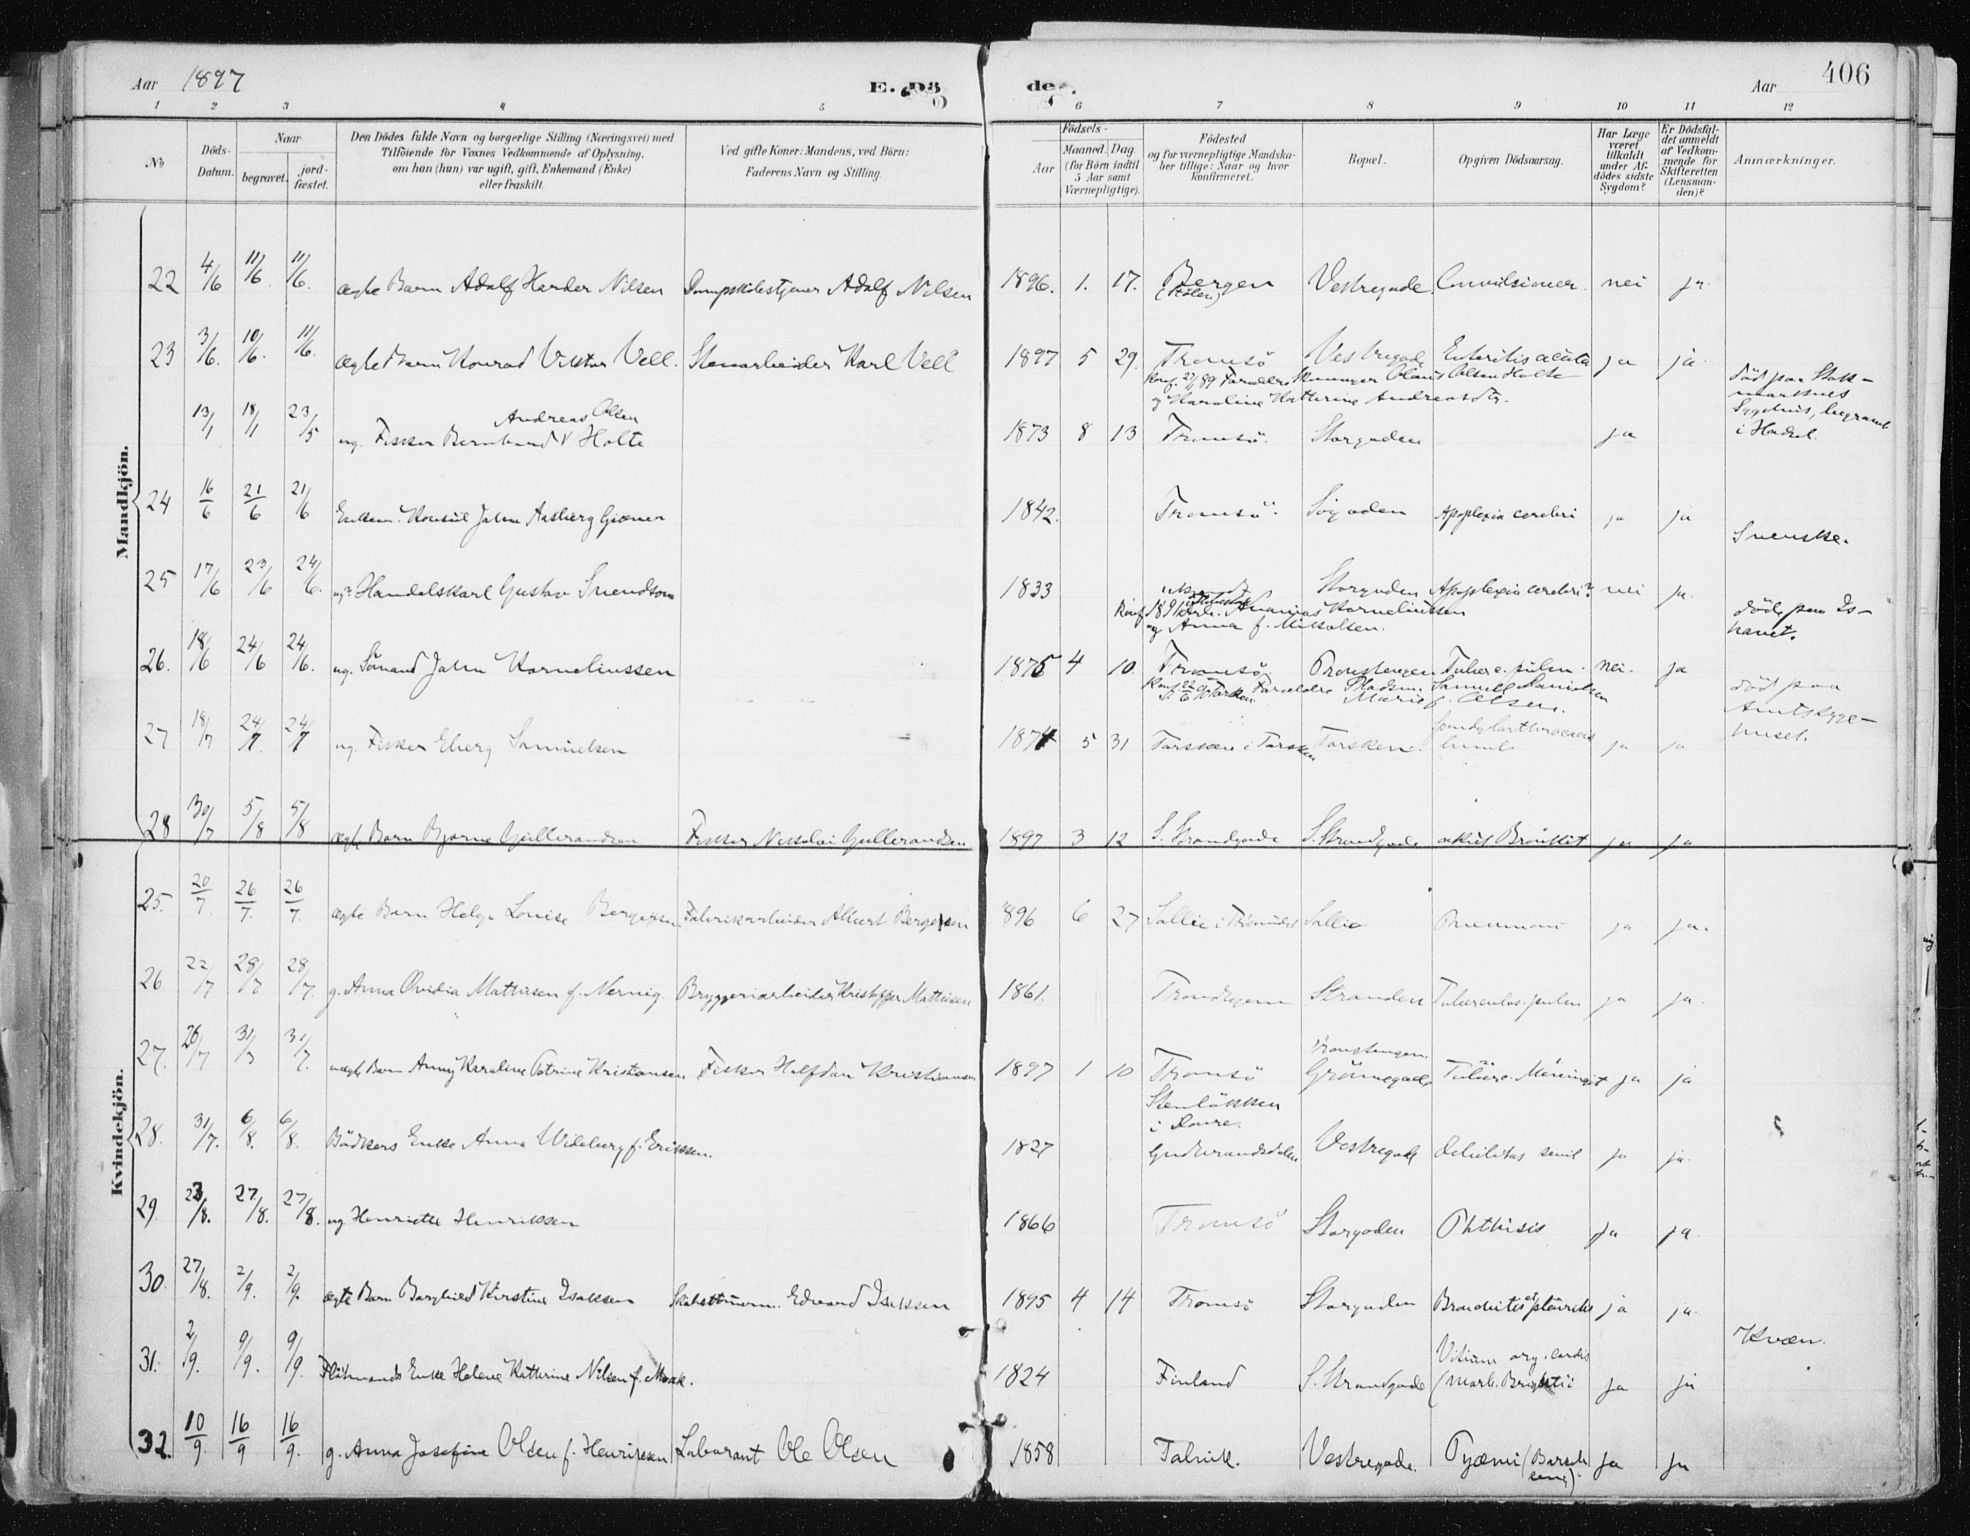 Aar 1897
E. Döde.
Aar
406
1 2 3 4 5 6 7 8 9 10 11 12
No
Döds-Datum.
Naar
begravet.
jordfæstet.
Den Dödes fulde Navn og borgerlige Stilling (Næringsvei) med
Tilföiende for Voxnes Vedkommende af Oplysning,
om han (hun) var ugift, gift, Enkemand (Enke)
eller fraskilt.
Ved gifte Koner: Mandens, ved Börn:
Faderens Navn og Stilling.
Födsels-
Aar
Maaned. Dag.
(for Börn indtil
5 Aar samt
Værnepligtige).
Födested
og for værnepligtige Mandskaber tillige: Naar og hvor
konfirmeret.
Bopæl.
Opgiven Dödsaarsag.
Har Læge
været
tilkaldt
under Afdödes sidste
Sygdom?
Er Dödsfaldet anmeldt
af Vedkommende for
Skifteretten
(Lensmanden)?
Anmærkninger.
Mandkjön.
22 4/6 11/6. 11/6. ægte Barn Adolf Harder Nilsen Dampskibstjener Adolf Nilsen 1896. 1. 17. Bergen Vestregade. Convulsioner. nei ja.
23 3/6. 10/6. 11/6. ægte Barn Konrad Viktor Vell. Stenarbeider Karl Vell 1897 5 29. Tromsö Vestregade Enteritis acuta ja ja.
Konf. Forældre Skomager Olaus Olsen Holte
og Karoline Kathrine Andreasdtr.
död paa Stokmarknes
Sygehus, begravet
i Hadsel.
13/1 18/1 23/5 ug. Fisker Bernhard Andreas Olsen Holte 1873 8 13 Tromsö. Storgaden ja
24 16/6 21/6 21/6 Enkem. Konsul John Aasberg Giæver 1842. Tromsö. Sögaden Apoplexia cerebri ja ja
Svenske.
25 17/6 23/6 24/6. ug. Handelskarl Gustav Svendson 1833 Storgaden Apoplexia cerebri? nei ja.
Ananias Korneliussen
og Anna f. Mikkelsen.
döde paa Ishavet.
26. 18/6 24/6 24/6. ug. Sömand John Korneliussen 1875 4 10. Tromsö Tuberc. pulm. nei. ja
Forældre Samuel Danielsen
Marie f. Olsen.
död paa
Amtssygehuset.
27 18/7 24/7 24/7 ug. Fisker Eberg Samuelsen 1874 5 31 Torsken i Torsken Torsken. ja ja
28 30/7 5/8 5/8 ægte Barn Bjarne Gullerandsen Fisker Nikolai Gullerandsen 1897 3 12 S. Strandgade S. Strandgade akut Bronkit ja ja
Kvindekjön.
25. 20/7. 26/7. 26/7. ægte Barn Helga Louise Bergersen Fabrikarbeider Albert Bergersen 896 6 27 Sollia Pneumoni ja ja.
26 22/7 28/7 28/7. g. Anna Ovidia Mathisen f. Nernig. Bryggeriarbeider Kristoffer Mathisen 1861. Trondhjem Stranden Tuberculos. pulm ja ja.
27. 26/7 31/7 31/7. uægte Barn Anny Karoline Petrine Kristiansen Fisker Halfdan Kristiansen 1897 1 10 Tromsö Grönnegade Tuberc. Meningit ja ja
28. 31/7. 6/8. 6/8. Bödkers Enke Anna Wideberg f. Eriksen. 1827 Stenlökken
i Dovre.
Gudbrandsdalen Vestregade Debilitas senil ja ja.
29. 23/8. 27/8. 27/8. ug. Henriette Henriksen 1866 Tromsö Storgaden Phthisis ja ja.
30. 27/8. 2/9. 2/9. ægte Barn Borghild Kirstine Isaksen Skibstömm. Edvard Isaksen 1895 4 14 Tromsö Storgaden Bronchitis et pleuritis ja ja.
Kvæn.
31. 2/9. 9/9. 9/9. Flötmands Enke Helene Kathrine Nilsen f. Maak. 1824 Finland S. Strandgade Vitium org. cordis
(Morb. Brightii ja ja
32. 10/9. 16/9 16/9. g. Anna Josefine Olsen f. Henriksen Laborant Ole Olsen 1858 Talvik. Vestregade. Pyæmi (Barselseng). ja ja